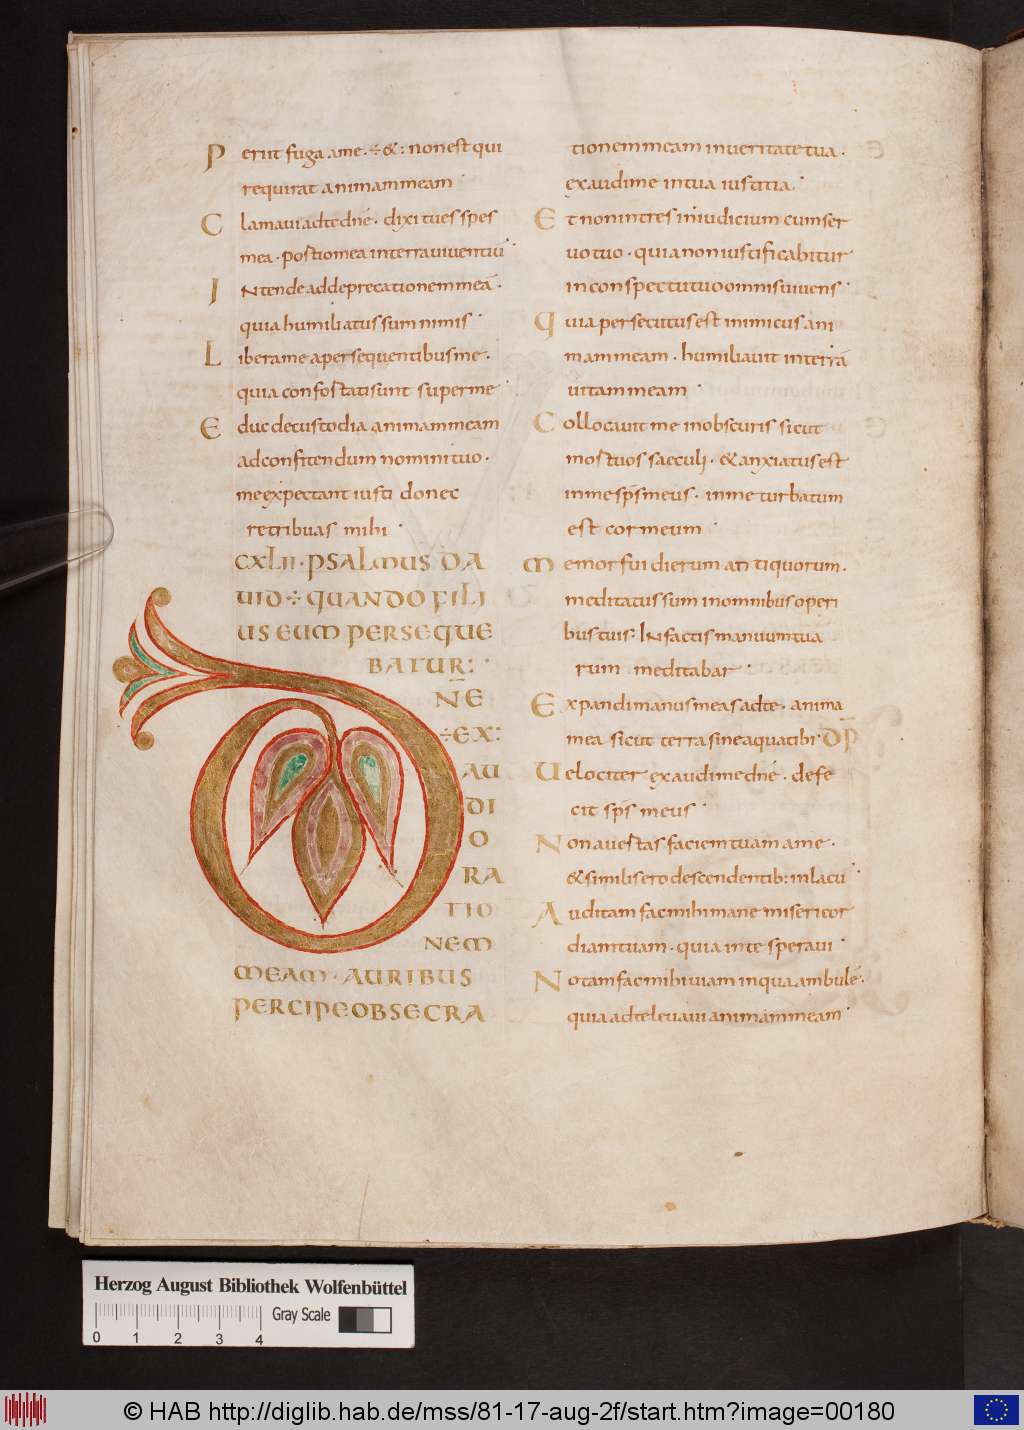 Periit fuga ame·÷&: nonest qui
requirat animammeam·
Clamaui adte dn̄e· dixi tues spes
mea· portiomea interrauiuentiū·
INtende addeprecationemmeā·
quia humiliatus sum nimis·
Liberame apersequentibusme·
quia confortatisunt superme·
Educ decustodia animammeam
adconfitendum nominituo·
meexpectant iusti donec
retribuas mihi·
CXLII· PSALMUS DA
UID÷ QUANDO FILI
US EUM PERSEQUE
BATUR:·
DN̄E
÷EX:
AU
DI
O
RA
TIO
NEM
MEAM· AURIBUS
PERCIPE OBSECRA
tionemmeam inueritatetua·
exaudime intua iustitia·
Et nonintres iniudicium cumser
uotuo· quia noniustificabitur
inconspectutuo omnisuiuens·
Quia persecutusest inimicus ani
mammeam· humiliauit interrā
uitammeam·
Collocauit me inobscuris sicut
mortuos saeculi· &anxiatusest
inme sp̄s meus· inme turbatum
est cor meum·
Memor fui dierum antiquorum·
meditatus sum inomnibus operi
bus tuis: INfactis manuumtua
rum meditabar·
Expandi manusmeas adte· anima
mea sicut terra sineaqua tibi· DP̄
Uelociter exaudime dn̄e· defe
cit sp̄s meus·
Non auertas faciemtuam ame·
&similis ero descendentib: inlacū·
Auditam fac mihi mane misericor
diamtuam· quia inte speraui·
Notam fac mihi uiam inqua ambulē·
quia adte leuaui animammeam·
Herzog August Bibliothek Wolfenbüttel
Gray Scale
0 1 2 3 4
© HAB http://diglib.hab.de/mss/81-17-aug-2f/start.htm?image=00180